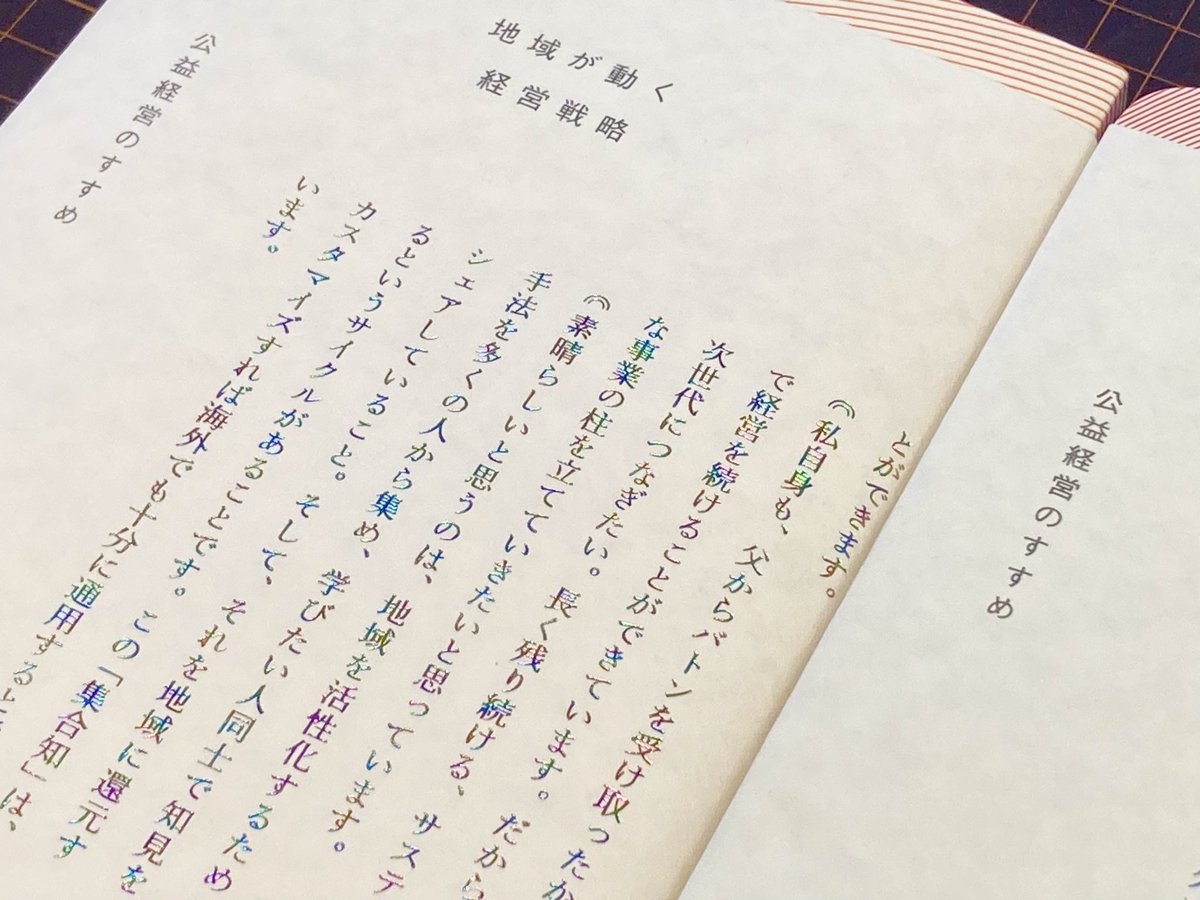 地域が動く
経営戦略
公益経営のすすめ
とができます。
⸨私自身も、父からバトンを受け取ったか
で経営を続けることができています。だから
次世代につなぎたい。長く残り続ける、サステ
な事業の柱を立てていきたいと思っています。
⸨素晴らしいと思うのは、地域を活性化するため
手法を多くの人から集め、学びたい人同士で知見を
シェアしていること。そして、それを地域に還元す
るというサイクルがあることです。この「集合知」は、
カスタマイズすれば海外でも十分に通用すると
います。
公益経営のすすめ